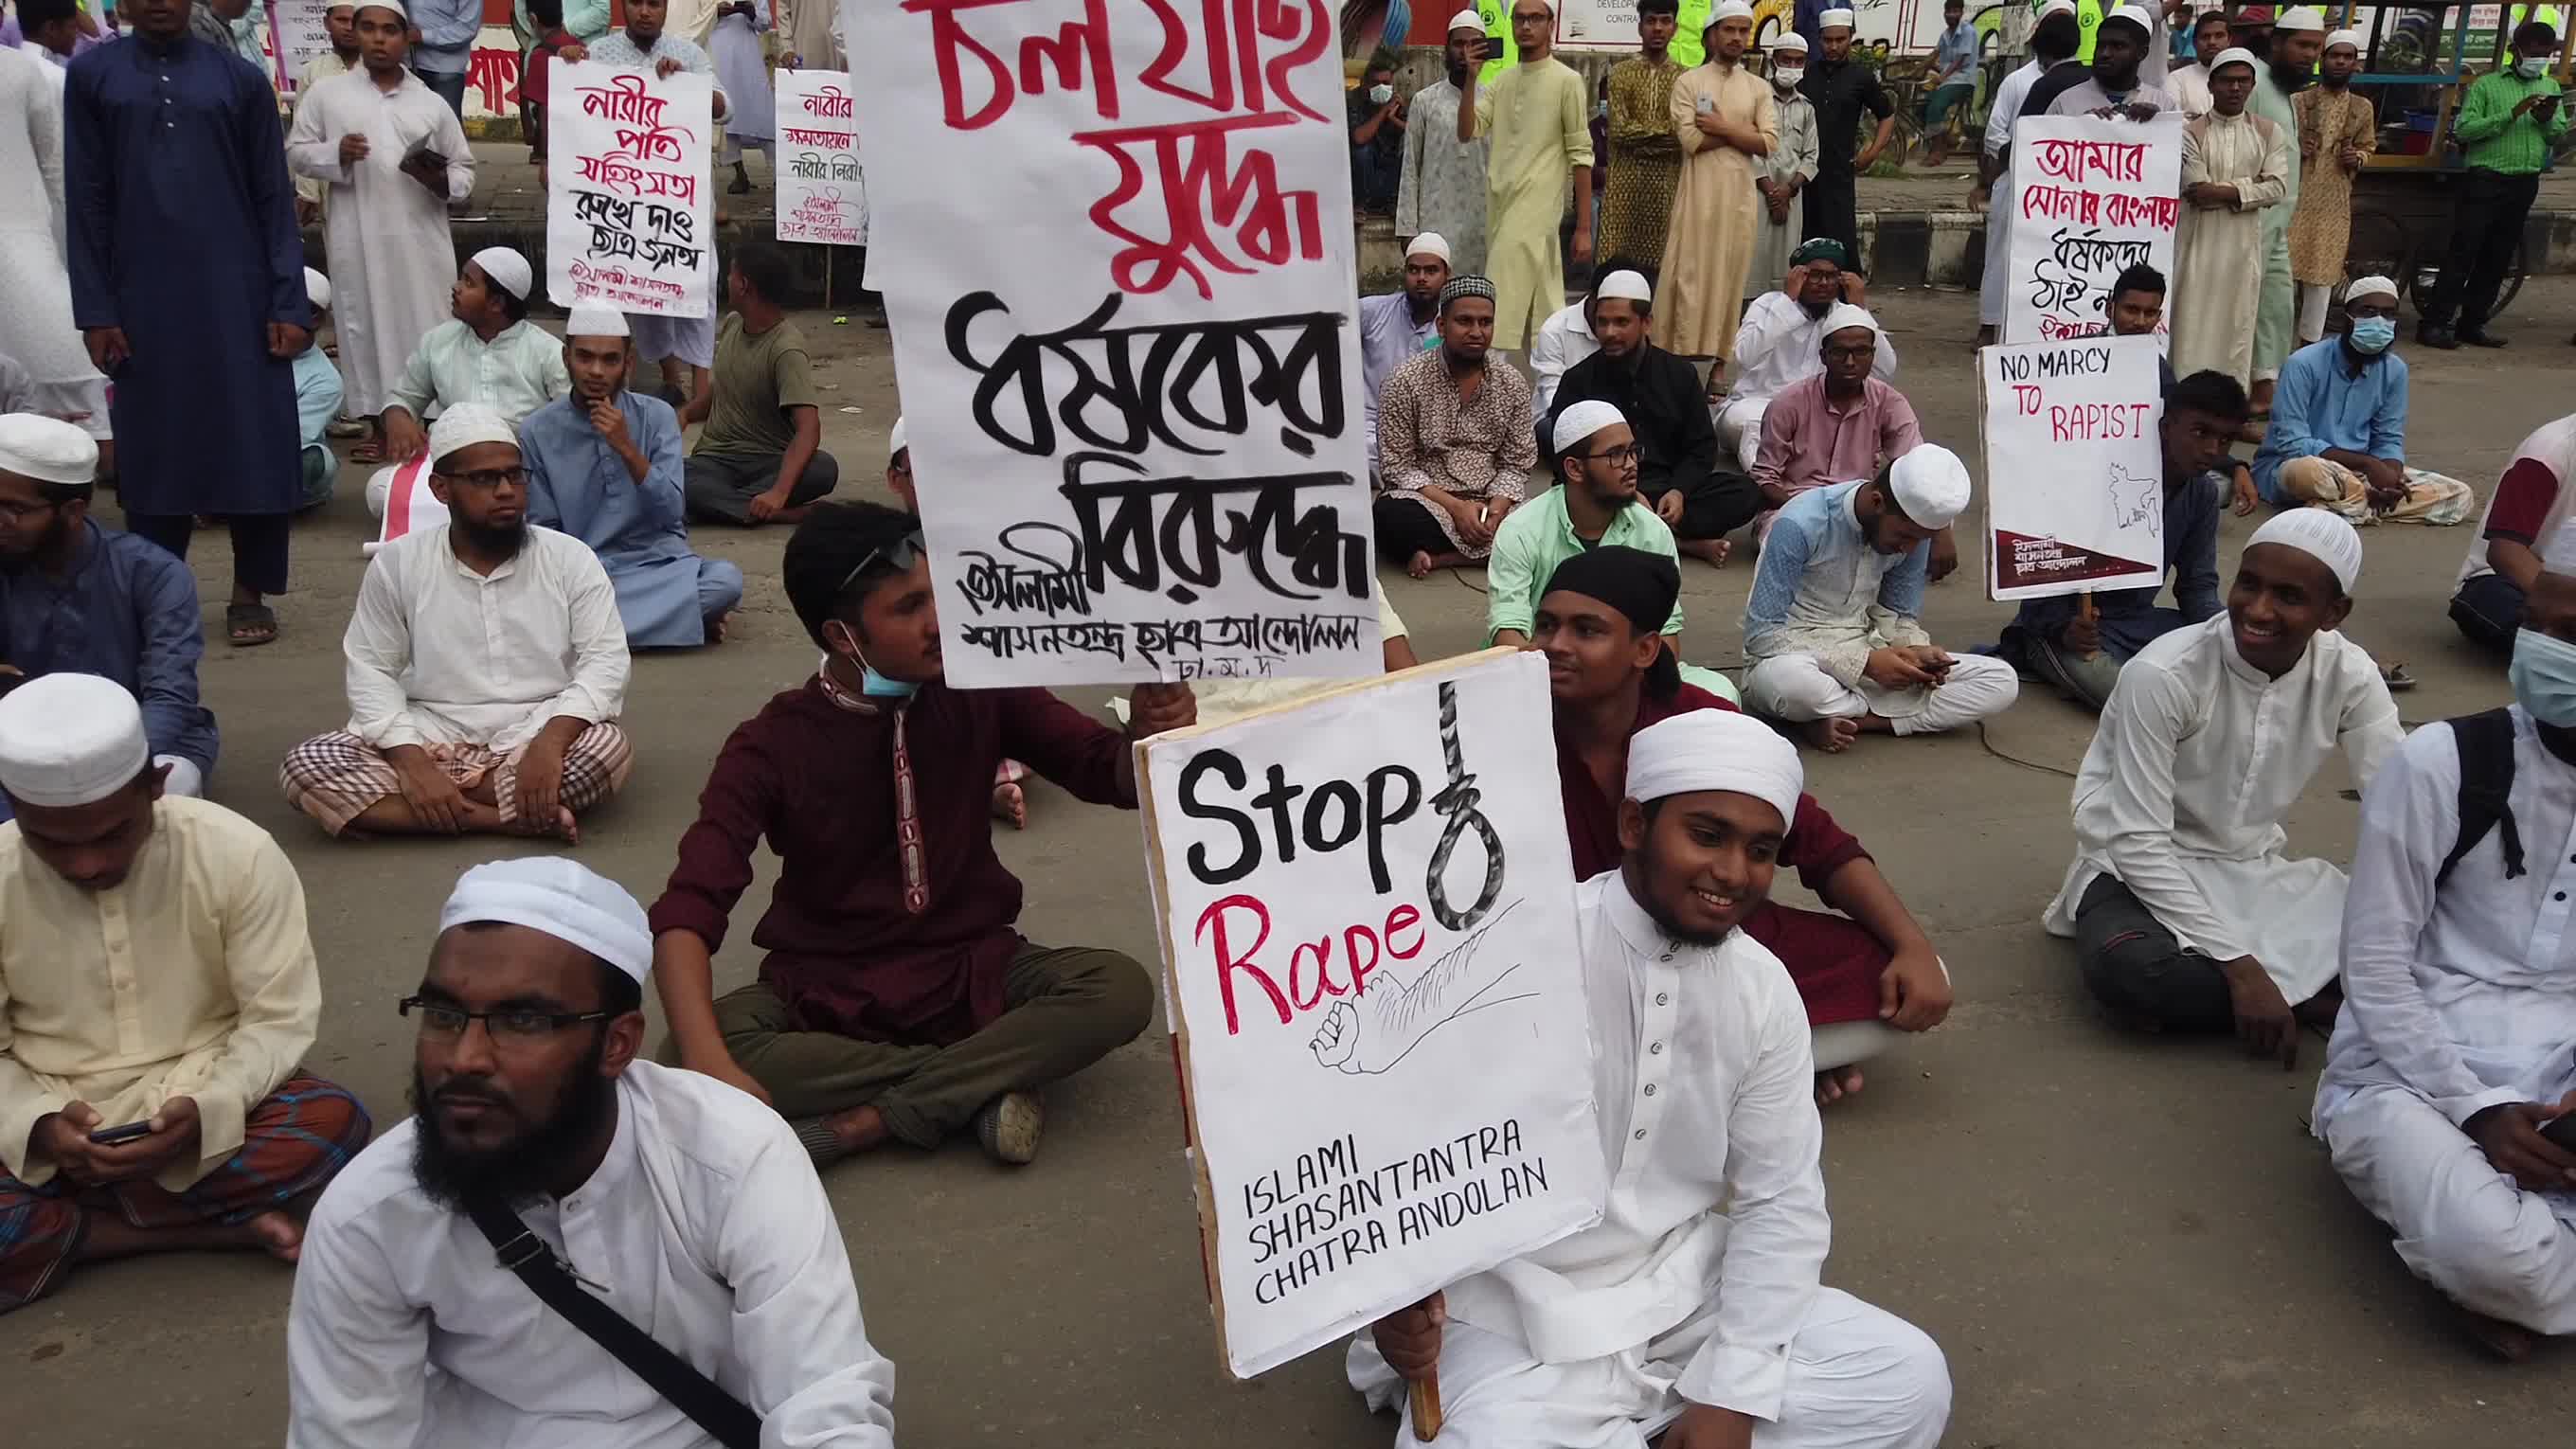 চল যাই
যুদ্ধে
ধর্ষকের
বিরুদ্ধে
ইসলামী
শাসনতন্ত্র ছাত্র আন্দোলন
ঢা.ম.দ
নারীর
প্রতি
সহিংসতা
রুখে দাও
ছাত্র জনতা
ইসলামী শাসনতন্ত্র
ছাত্র আন্দোলন
নারীর
ক্ষমতায়নে
নারীর
ইসলামী
শাসনতন্ত্র
ছাত্র আন্দোলন
আমার
সোনার বাংলায়
ধর্ষকদের
ঠাই
NO MARCY
TO
RAPIST
ইসলামী
শাসনতন্ত্র
ছাত্র আন্দোলন
Stop
Rape
ISLAMI
SHASANTANTRA
CHATRA ANDOLAN